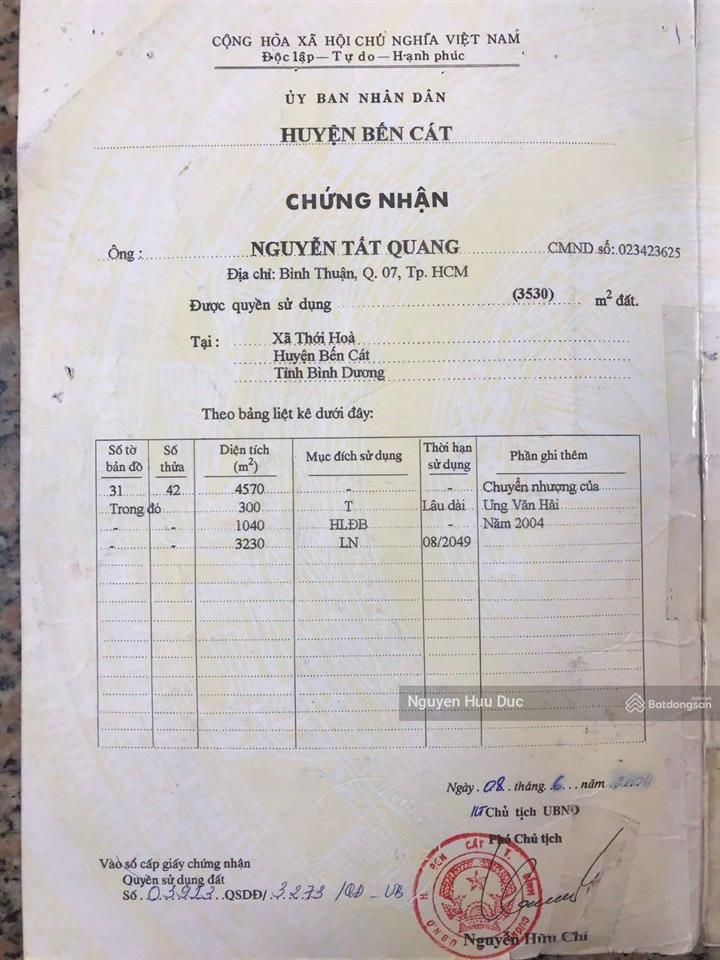 CỘNG HÒA XÃ HỘI CHỦ NGHĨA VIỆT NAM
Độc lập — Tự do — Hạnh phúc
ỦY BAN NHÂN DÂN
HUYỆN BẾN CÁT
CHỨNG NHẬN
Ông : NGUYỄN TẤT QUANG CMND số: 023423625
Địa chỉ: Bình Thuận, Q. 07, Tp. HCM
Được quyền sử dụng (3530) m² đất.
Tại : Xã Thới Hoà
Huyện Bến Cát
Tỉnh Bình Dương
Theo bảng liệt kê dưới đây:
Số tờ bản đồ Số thửa Diện tích (m²) Mục đích sử dụng Thời hạn sử dụng Phần ghi thêm
31 42 4570 - - Chuyển nhượng của
Trong đó 300 T Lâu dài Ung Văn Hải
- - 1040 HLĐB - Năm 2004
- - 3230 LN 08/2049
Nguyen Huu Duc
Batdongsan.com.vn
Ngày 08 tháng 6 năm 2004
KT Chủ tịch UBND
Phó Chủ tịch
Vào sổ cấp giấy chứng nhận
Quyền sử dụng đất
Số QSDĐ/ 3273 /QĐ-UB
U.B.N.D H. BẾN CÁT T. BÌNH DƯƠNG
Nguyễn Hữu Chí